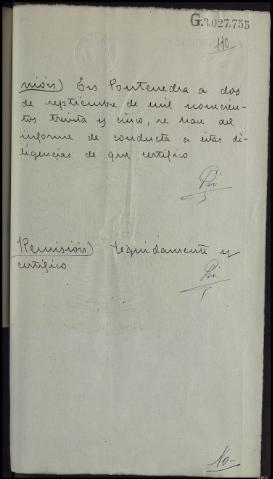 G.3,027,755
140
nión) En Pontevedra a dos
de septiembre de mil novecien-
tos treinta y cinco, se une el
informe de conducta a estas di-
ligencias de que certifico
Remisión) Seguidamente y
certifico
10-